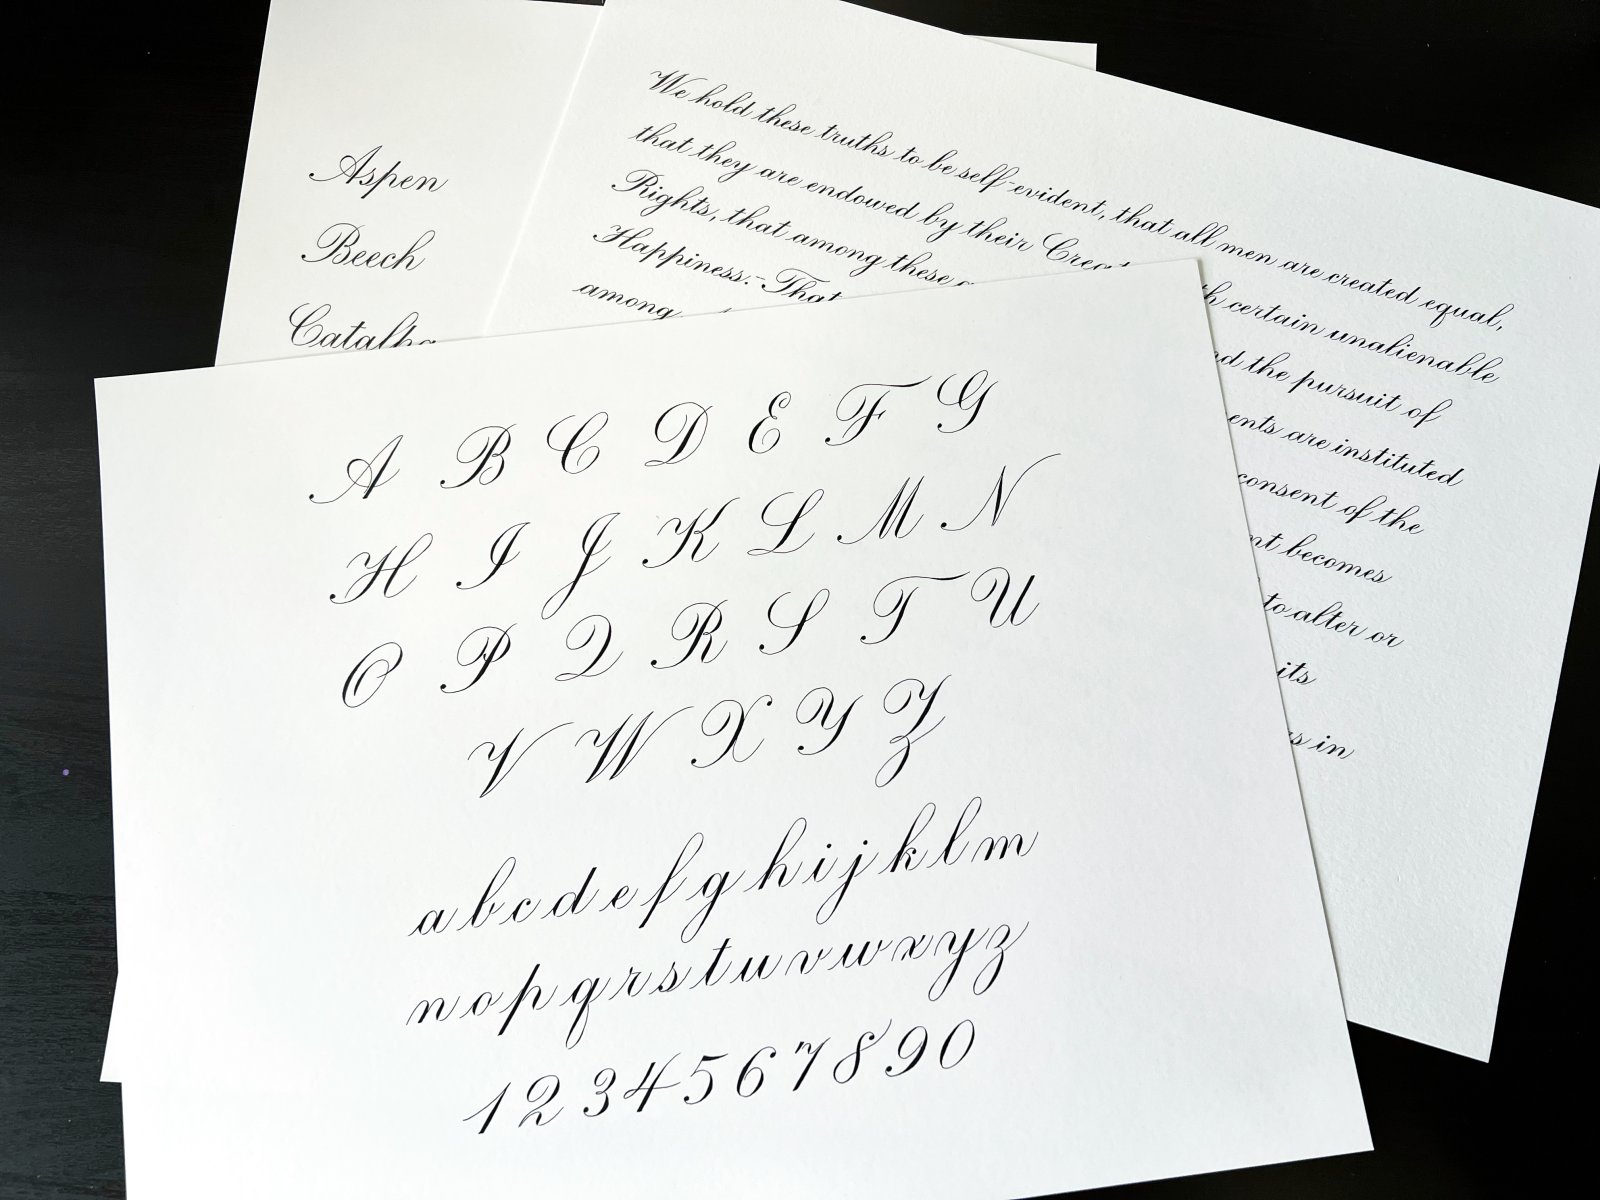 Aspen
Beech
We hold these truths to be self-evident, that all men are created equal,
that they are endowed by their certain unalienable
Rights, that among these the pursuit of
Happiness.-That are instituted
among consent of the
becomes
to alter or
its
in
A B C D E F G
H I J K L M N
O P Q R S T U
V W X Y Z
a b c d e f g h i j k l m
n o p q r s t u v w x y z
1 2 3 4 5 6 7 8 9 0